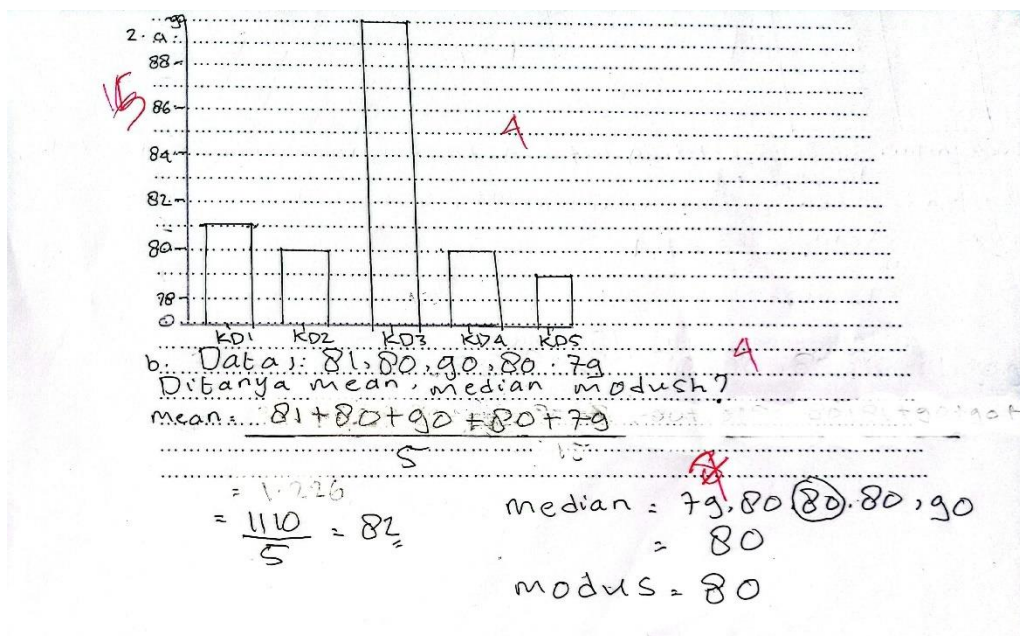 2. a.
90
88
86
84
82
80
78
0
15
4
KD1 KD2 KD3 KD4 KD5
b. Data: 81, 80, 90, 80, 79
4
Ditanya mean, median modush?
mean = 81+80+90+80+79
5
= 1.226
= 1110 = 82
5
median = 79, 80 80, 80, 90
= 80
modus = 80